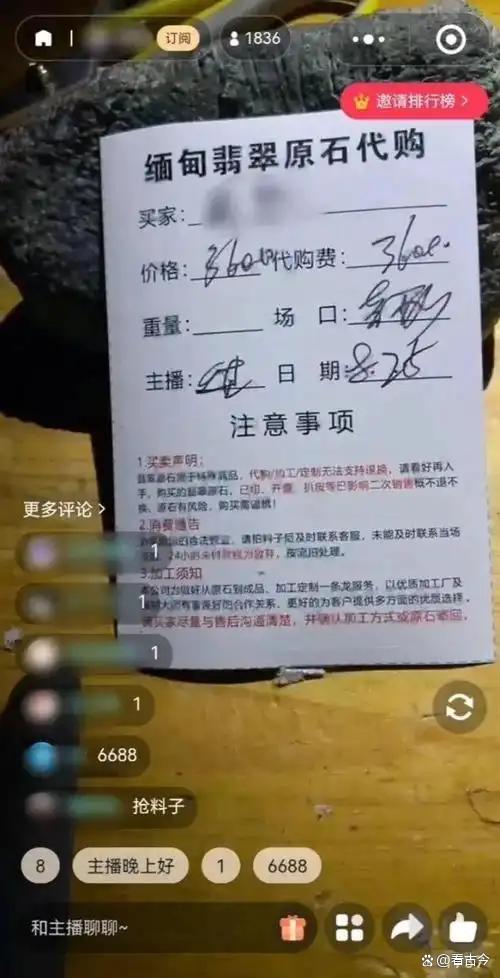 订阅
1836
邀请排行榜 >
缅甸翡翠原石代购
买家:
价格: 3600 代购费: 3600.
重量: 场 口:
主播: 日 期: 8.25
注意事项
1.买卖声明:
翡翠原石属于特殊商品,代购/加工/定制无法支持退换,请看好再入
手,购买的翡翠原石,已切、开窗、扒皮等已影响二次销售概不退不
换、原石有风险,购买需谨慎!
2.消费通告
请拍料子挺及时联系客服,未能及时联系当场
24小时未付款视为放弃,按流拍处理。
3.加工须知
本公司为做好从原石到成品、加工定制一条龙服务,以优质加工厂及
大师有着良好的合作关系、更好的为客户提供多方面的优质选择。
请买家尽量与售后沟通清楚,并确认加工方式或原石寄回。
更多评论 >
1
1
1
1
6688
抢料子
8
主播晚上好
1
6688
和主播聊聊~
看古今